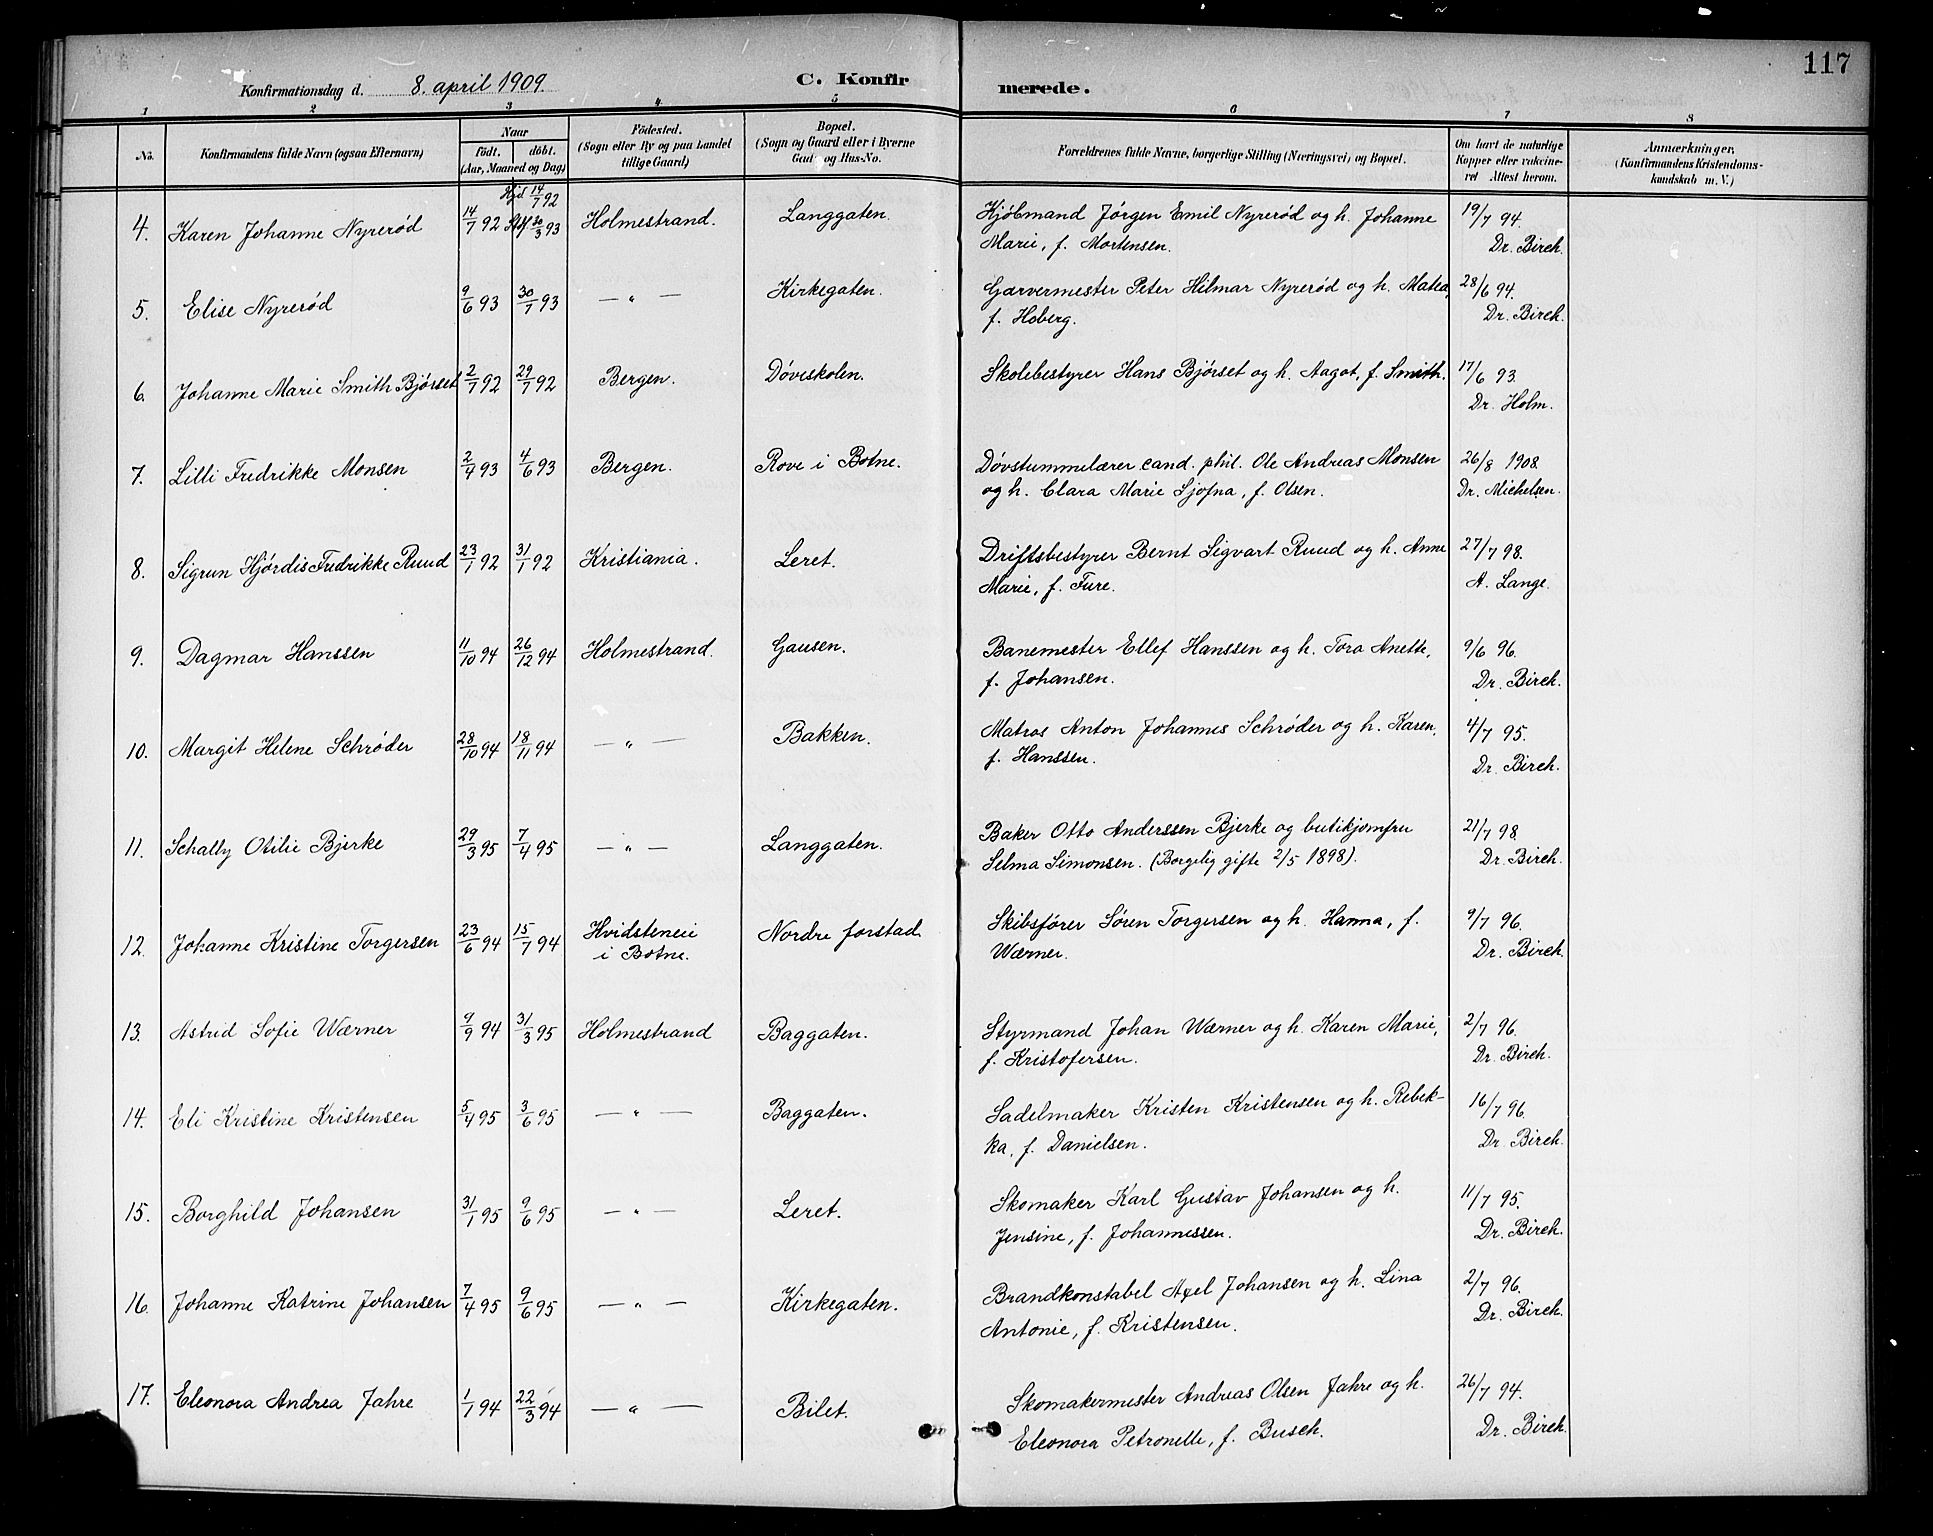 117
Konfirmationsdag d. 8. april 1909. C. Konfirmerede.
1 2 3 4 5 6 7 8
No. Konfirmandens fulde Navn (ogsaa Efternavn) Naar født. døbt. (Aar, Maaned og Dag) Fødested. (Sogn eller By og paa Landet tillige Gaard) Bopæl. (Sogn og Gaard eller i Byerne Gade og Hus-No. Forældrenes fulde Navne, borgerlige Stilling (Næringsvei) og Bopæl. Om havt de naturlige Kopper eller vakcineret Attest herom. Anmærkninger. (Konfirmandens Kristendomskundskab m. V.)
4. Karen Johanne Nyrerød 14/7 92 Hjd 14/7 92 Stdf. 30/3 93 Holmestrand. Langgaten. Kjøbmand Jørgen Emil Nyrerød og h. Johanne 19/7 94.
Marie, f. Mortensen. Dr. Birch.
5. Elise Nyrerød 9/6 93 30/7 93 — " — Kirkegaten. Garvermester Peter Hilmar Nyrerød og h. Matea, 28/6 94.
f. Hoberg. Dr. Birch.
6. Johanne Marie Smith Bjørset 2/7 92 29/7 92 Bergen. Døveskolen. Skolebestyrer Hans Bjørset og h. Aagot, f. Smith. 17/6 93.
Dr. Holm.
7. Lilli Fredrikke Monsen 2/4 93 4/6 93 Bergen. Rove i Botne. Døvstummelærer cand. phil. Ole Andreas Monsen 26/8 1908.
og h. Clara Marie Sjofna, f. Olsen. Dr. Michelsen.
8. Sigrun Hjørdis Fredrikke Ruud 23/1 92 31/1 92 Kristiania. Leret. Driftsbestyrer Bernt Sigvart Ruud og h. Anne 27/7 98.
Marie, f. Fure. A. Lange.
9. Dagmar Hanssen 11/10 94 26/12 94 Holmestrand. Gausen. Banemester Ellef Hanssen og h. Tora Anette, 9/6 96.
f. Johansen. Dr. Birch.
10. Margit Helene Schrøder 28/10 94 18/11 94 — " — Bakken. Matros Anton Johannes Schrøder og h. Karen, 4/7 95.
f. Hanssen. Dr. Birch.
11. Schally Otilie Bjerke 29/3 95 7/4 95 — " — Langgaten. Baker Otto Anderssen Bjerke og butikjomfru 21/7 98.
Selma Simonsen. (Borgelig gifte 2/5 1898). Dr. Birch.
12. Johanne Kristine Torgersen 23/6 94 15/7 94 Hvidsteneie Nordre forstad. Skibsfører Søren Torgersen og h. Hanna, f. 9/7 96.
i Botne. Wærner. Dr. Birch.
13. Astrid Sofie Wærner 9/9 94 31/3 95 Holmestrand Baggaten. Styrmand Johan Wærner og h. Karen Marie, 2/7 96.
f. Kristofersen. Dr. Birch.
14. Eli Kristine Kristensen 5/4 95 3/6 95 — " — Baggaten. Sadelmaker Kristen Kristensen og h. Rebek- 16/7 96.
ka, f. Danielsen. Dr. Birch.
15. Borghild Johansen 31/1 95 9/6 95 — " — Leret. Skomaker Karl Gustav Johansen og h. 11/7 95.
Jensine, f. Johannessen. Dr. Birch.
16. Johanne Katrine Johansen 7/4 95 9/6 95 — " — Kirkegaten. Brandkonstabel Axel Johansen og h. Lina 2/7 96.
Antonie, f. Kristensen. Dr. Birch.
17. Eleonora Andrea Jahre 1/1 94 22/3 94 — " — Bilet. Skomakermester Andreas Olsen Jahre og h. 26/7 94.
Eleonora Petronelle, f. Busch. Dr. Birch.